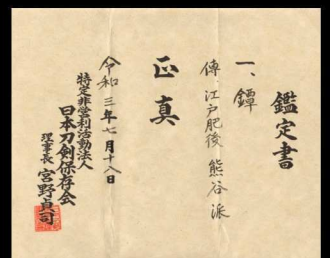 鑑定書
一、鐔
傳 江戸肥後 熊谷派
正真
令和三年七月十八日
特定非営利活動法人
日本刀剣保存会
理事長 宮野貞司